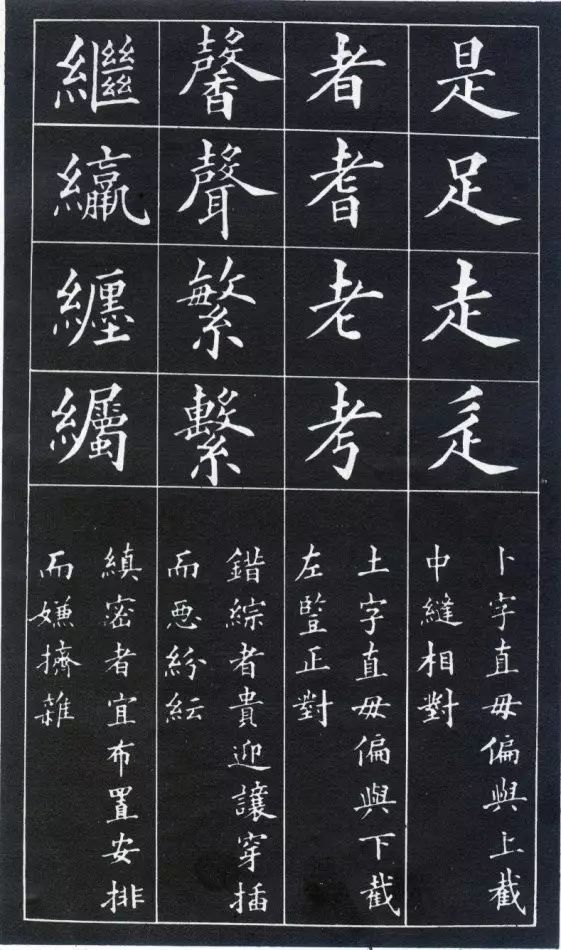 是足走辵
卜字直毋偏與上截
中縫相對
者耆老考
土字直毋偏與下截
左豎正對
馨聲繁繫
錯綜者貴迎讓穿插
而惡紛紜
繼纒
縝密者宜布置安排
而嫌擠雜